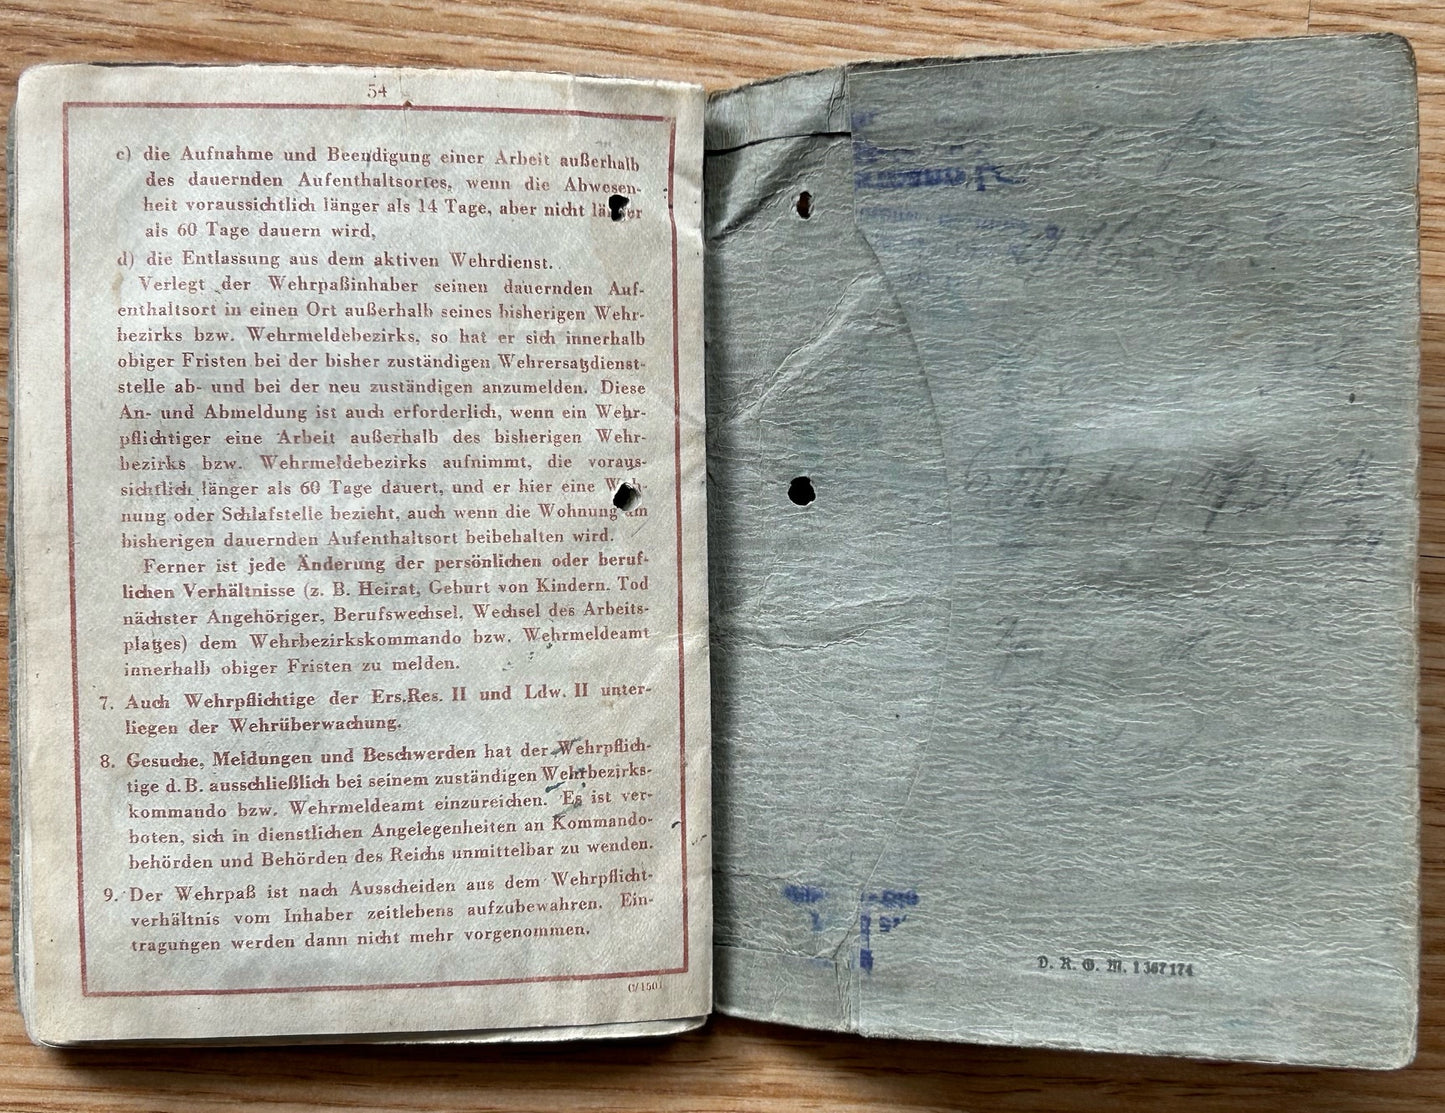 54
c) die Aufnahme und Beendigung einer Arbeit außerhalb
des dauernden Aufenthaltsortes, wenn die Abwesen-
heit voraussichtlich länger als 14 Tage, aber nicht länger
als 60 Tage dauern wird,
d) die Entlassung aus dem aktiven Wehrdienst.
Verlegt der Wehrpaßinhaber seinen dauernden Auf-
enthaltsort in einen Ort außerhalb seines bisherigen Wehr-
bezirks bzw. Wehrmeldebezirks, so hat er sich innerhalb
obiger Fristen bei der bisher zuständigen Wehrersatzdienst-
stelle ab- und bei der neu zuständigen anzumelden. Diese
An- und Abmeldung ist auch erforderlich, wenn ein Wehr-
pflichtiger eine Arbeit außerhalb des bisherigen Wehr-
bezirks bzw. Wehrmeldebezirks aufnimmt, die voraus-
sichtlich länger als 60 Tage dauert, und er hier eine Woh-
nung oder Schlafstelle bezieht, auch wenn die Wohnung am
bisherigen dauernden Aufenthaltsort beibehalten wird.
Ferner ist jede Änderung der persönlichen oder beruf-
lichen Verhältnisse (z. B. Heirat, Geburt von Kindern, Tod
nächster Angehöriger, Berufswechsel, Wechsel des Arbeits-
platzes) dem Wehrbezirkskommando bzw. Wehrmeldeamt
innerhalb obiger Fristen zu melden.
7. Auch Wehrpflichtige der Ers.Res. II und Ldw. II unter-
liegen der Wehrüberwachung.
8. Gesuche, Meldungen und Beschwerden hat der Wehrpflich-
tige d. B. ausschließlich bei seinem zuständigen Wehrbezirks-
kommando bzw. Wehrmeldeamt einzureichen. Es ist ver-
boten, sich in dienstlichen Angelegenheiten an Kommando-
behörden und Behörden des Reichs unmittelbar zu wenden.
9. Der Wehrpaß ist nach Ausscheiden aus dem Wehrpflicht-
verhältnis vom Inhaber zeitlebens aufzubewahren. Ein-
tragungen werden dann nicht mehr vorgenommen.
D. R. G. M. 1 367 174